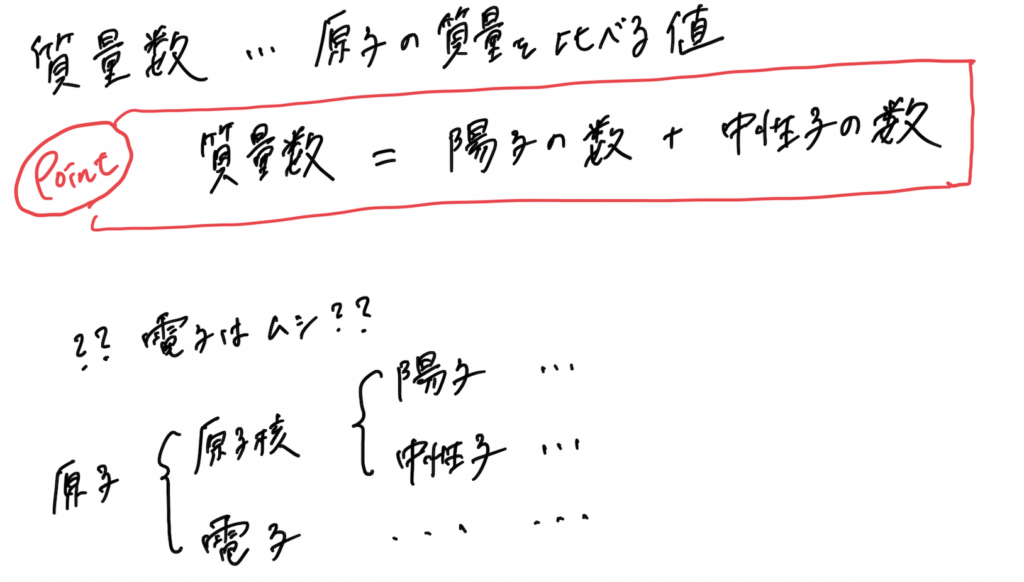 質量数 … 原子の質量を比べる値
Point
質量数 = 陽子の数 + 中性子の数
?? 電子はムシ??
原子 { 原子核 { 陽子 …
中性子 …
電子 ... ...